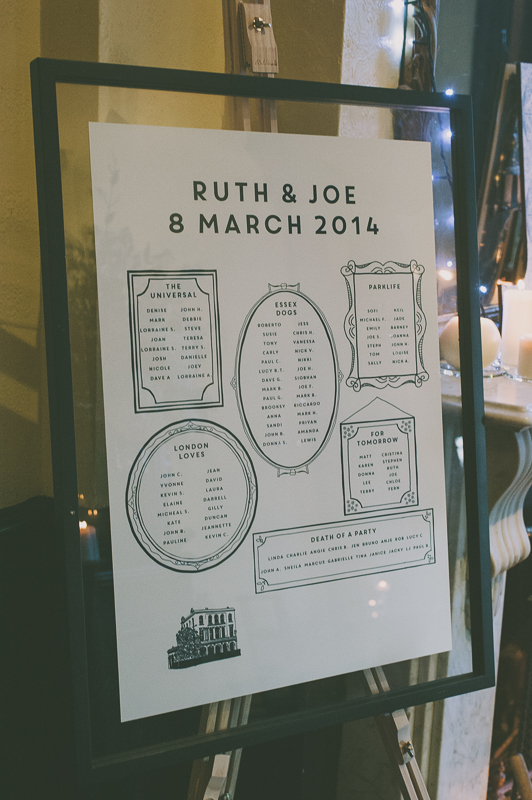 RUTH & JOE
8 MARCH 2014
THE
UNIVERSAL
DENISE JOHN H.
MARK DEBBIE
LORRAINE S. STEVE
JOAN TERESA
LORRAINE S. TERRY S.
JOSH DANIELLE
NICOLE JOEY
DAVE A. LORRAINE A.
ESSEX
DOGS
ROBERTO JESS
SUSIE CHRIS H.
TONY VANESSA
CARLY NICK V.
PAUL C. NIKKI
LUCY B.T. JOE H.
DAVE G. SIOBHAN
MARK B. JOE F.
PAUL G. MARK R.
BROONEY RICCARDO
ANNA MARK H.
SANDI PRIYAN
JOHN B. AMANDA
DONNA S. LEWIS
PARKLIFE
ZOE NEIL
MICHAEL F. JADE
EMILY BARNEY
JOE S. JOANNA
STEPH JOHN R.
TOM LOUISE
SALLY NICK R.
LONDON
LOVES
JOHN C. JEAN
YVONNE DAVID
KEVIN S. LAURA
ELAINE DARRELL
MICHEAL S. GILLY
KATE DUNCAN
JOHN R. JEANNETTE
PAULINE KEVIN C.
FOR
TOMORROW
MATT CRISTINA
KAREN STEPHEN
DONNA RUTH
LEE JOE
TERRY CHLOE
FERN
DEATH OF A PARTY
LINDA CHARLIE ANGIE CHRIS R. JEN BRUNO ANJE ROB LUCY C
JOHN A. SHEILA MARCUS GABRIELLE TINA JANICE JACKY LJ PAUL R